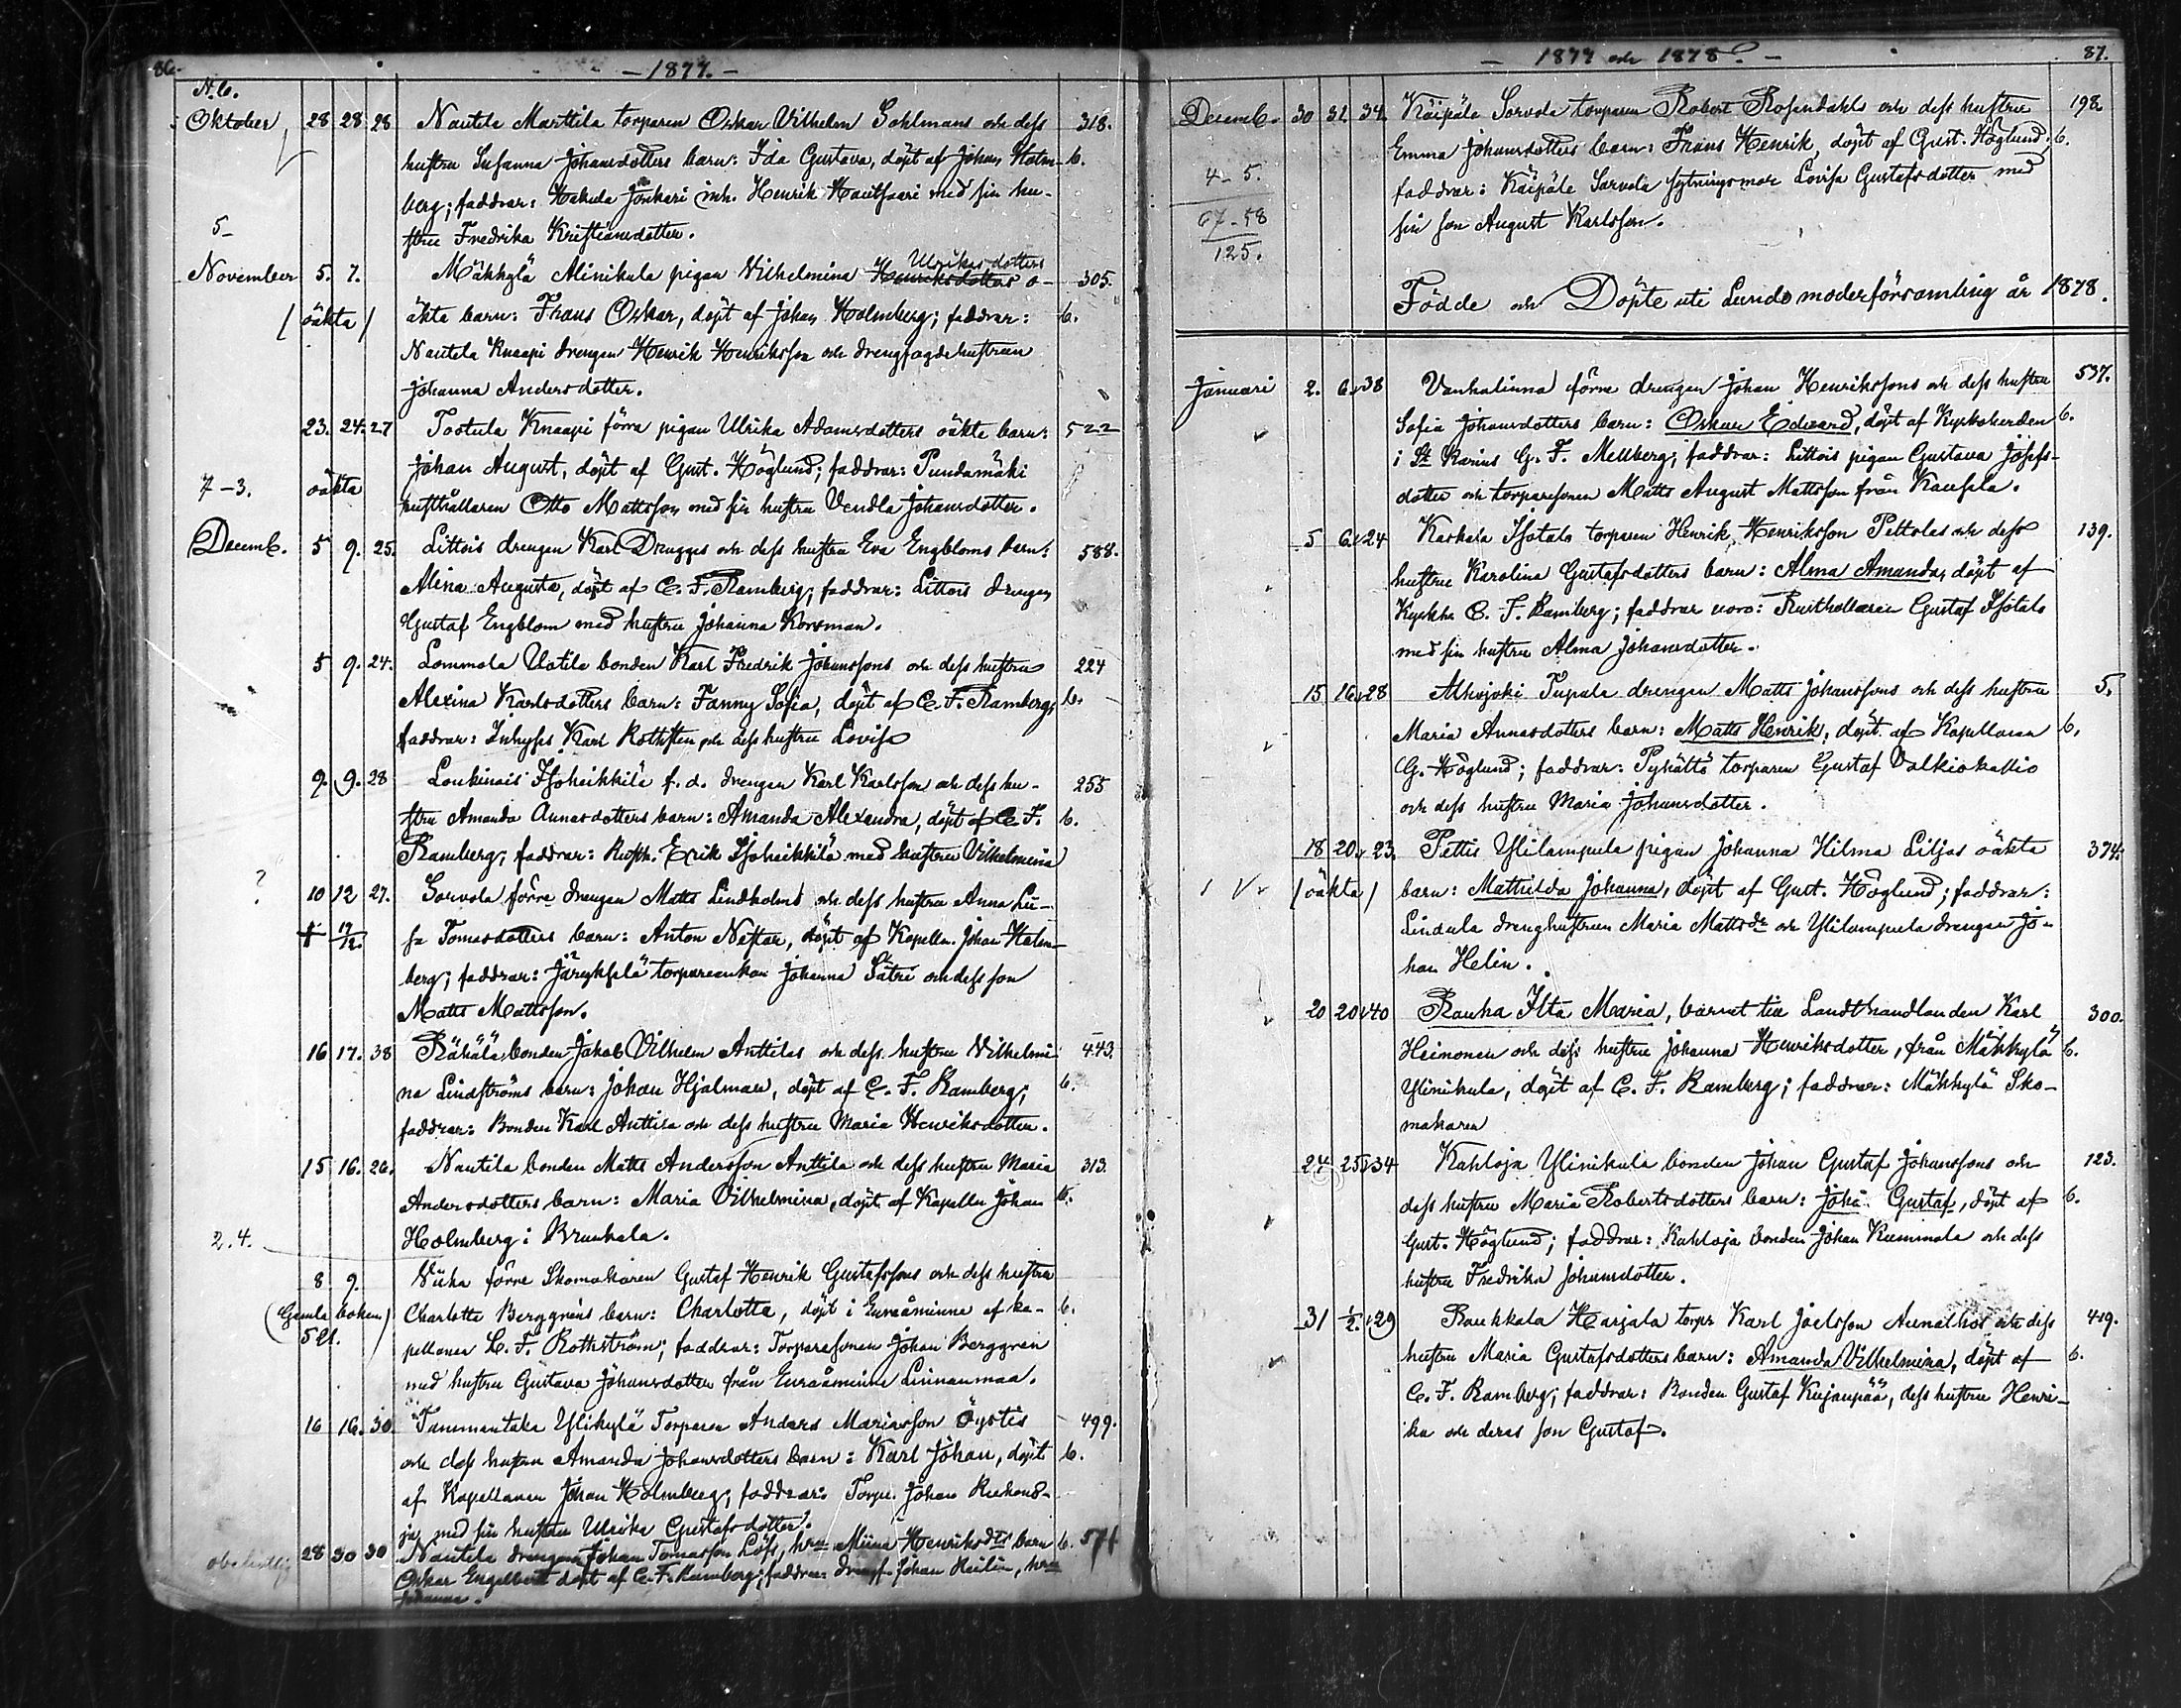 86.
- 1877. -
N. 6.
Oktober 28 28 28 Nautela Marttila torparen Oskar Vilhelm Sohlmans och dess 318.
hustru Susanna Johansdotters barn: Ida Gustava, döpt af Johan Holm- b.
berg; faddrar: Hakula Junkari inh. Henrik med sin hu-
stru Fredrika Kristiansdotter.
5-
November 5. 7. Mäkkylä Alinikula pigan Vilhelmina Henriksdotters Ulrikasdotters o- 305.
/oäkta/ äkta barn: Frans Oskar, döpt af Johan Holmberg; faddrar: b.
Nautela Knaapi drengen Henrik Henriksson och drengfogdehustrun
Johanna Andersdotter.
23. 24. 27 Tootula Knaapi förra pigan Ulrika Adamsdotters oäkta barn: 522
Johan August, döpt af Gust. Höglund; faddrar: Pundamäki
7-3. oäkta
rusthållaren Otto Mattsson med sin hustru Vendla Johansdotter.
Decemb. 5 9. 25. Littois drengen Karl Drugges och dess hustru Eva Engbloms barn: 588.
Alina Augusta, döpt af C. F. Ramberg; faddrar: Littois drengen
Gustaf Engblom med hustru Johanna Korsman.
5 9. 24. Lommola Uotila bonden Karl Fredrik Johanssons och dess hustru 224
Alexina Karlsdotters barn: Fanny Sofia, döpt af C. F. Ramberg; b.
faddrar: Inhyses Karl Rothsten och dess hustru Lovisa
9. 9. 28 Loukinais Isoheikkilä f. d. drengen Karl Karlsson och dess hu- 255
stru Amanda Annasdotters barn: Amanda Alexandra, döpt af C. F. b.
Ramberg; faddrar: Rusth. Erik Isoheikkilä med hustru Vilhelmina
?
10 12 27. Sorvola förre drengen Matts Lindholms och dess hustru Anna Lu-
† 17/12. sa Tomasdotters barn: Anton Nestor, döpt af Kapella. Johan Holm-
berg; faddrar: Järykselä torpareenkan Johanna Sätri och dess son
Matts Mattsson.
16 17. 38 Rähälä bonden Jakob Vilhelm Anttilas och dess hustru Vilhelmi- 443.
na Lindströms barn: Johan Hjalmar, döpt af C. F. Ramberg; b.
faddrar: Bonden Karl Anttila och dess hustru Maria Henriksdotter.
15 16. 26. Nautila bonden Matts Andersson Anttila och dess hustru Maria 313.
Andersdotters barn: Maria Vilhelmina, döpt af Kapellan Johan b.
2. 4.
Holmberg i Brunkala.
8 9. förre Skomakaren Gustaf Henrik Gustafssons och dess hustru
(Gamla boken) Charlotte Berggréns barn: Charlotta, döpt i Euraåminne af ka- b.
521. pellanen L. F. Rothström; faddrar: Torparesonen Johan Berggren
med hustru Gustava Johansdotter från Euraåminne Linnanmaa.
16 16. 30 Tammentaka Ylikylä Torparen Anders Mariasson Öystis 499.
och dess hustru Amanda Johansdotters barn: Karl Johan, döpt b.
af Kapellanen Johan Holmberg; faddrar: Torpa. Johan
med sin hustru Ulrika Gustafsdotter.
28 30 30 Nautela drengen Johan Tomasson Löfs, hru Miina Henriksdrs barn b. 571
Oskar Engelbert döpt af C. F. Ramberg; faddrar: Johan Heilin, hru
Johanna.
- 1877 och 1878. -
87.
Decemb. 30 31 34. Käipälä Sorvola torparen Robert Rosendahls och dess hustru 198
Emma Johansdotters barn: Frans Henrik, döpt af Gust. Höglund; b.
4-5.
faddrar: Käipäle Sarvola sytningsmor Lovisa Gustafsdotter med
67-58
sin son August Karlsson.
125.
Födde och Döpte uti Lundo moderförsamling år 1878.
Januari 2. 6. 38 Vanhalinna förre drengen Johan Henrikssons och dess hustru 537.
Sofia Johansdotters barn: Oskar Edvard, döpt af Kyrkoherden b.
i St Karins G. F. Mellberg; faddrar: Littois pigan Gustava Josefs-
dotter och torparesonen Matts August Mattsson från Kausela.
5 6. 24 Kaskala Isotalo torparen Henrik Henriksson Peltolas och dess 139.
hustru Karolina Gustafsdotters barn: Alma Amanda, döpt af
Kyrkhn C. F. Ramberg; faddrar voro: Rusthållaren Gustaf Isotalo
med sin hustru Alma Johansdotter.
15 16 28 Alhojoki Tupala drengen Matts Johanssons och dess hustru 5.
Maria Annasdotters barn: Matts Henrik, döpt af Kapellanen b.
G. Höglund; faddrar: Pyhättö torparen Gustaf Valkiokallio
och dess hustru Maria Johansdotter.
18 20. 23. Pettis Ylilampula pigan Johanna Hilma Liljas oäkta 374.
/oäkta/ barn: Mathilda Johanna, döpt af Gust. Höglund; faddrar:
Lindula drenghustrun Maria Mattsdr och Ylilampula drengen Jo-
han Helin.
20 20 40 Rauha Ilta Maria, barnet till Landthandlanden Karl 300.
Heimonen och dess hustru Johanna Henriksdotter, från Mäkkylä b.
Ylinikula, döpt af C. F. Ramberg; faddrar: Mäkkylä Sko-
makaren
24 25. 34 Kahloja Ylinikula bonden Johan Gustaf Johanssons och 123.
dess hustru Maria Robertsdotters barn: Joha Gustaf, döpt af b.
Gust. Höglund; faddrar: Kahloja bonden Johan Kummala och dess
hustru Fredrika Johansdotter.
31 1/2. 29 Raukkala Harjala torpr Karl Joelsson och dess 419.
hustru Maria Gustafsdotters barn: Amanda Vilhelmina, döpt af b.
C. F. Ramberg; faddrar: Bonden Gustaf Kujanpää, dess hustru Henri-
ka och deras son Gustaf.